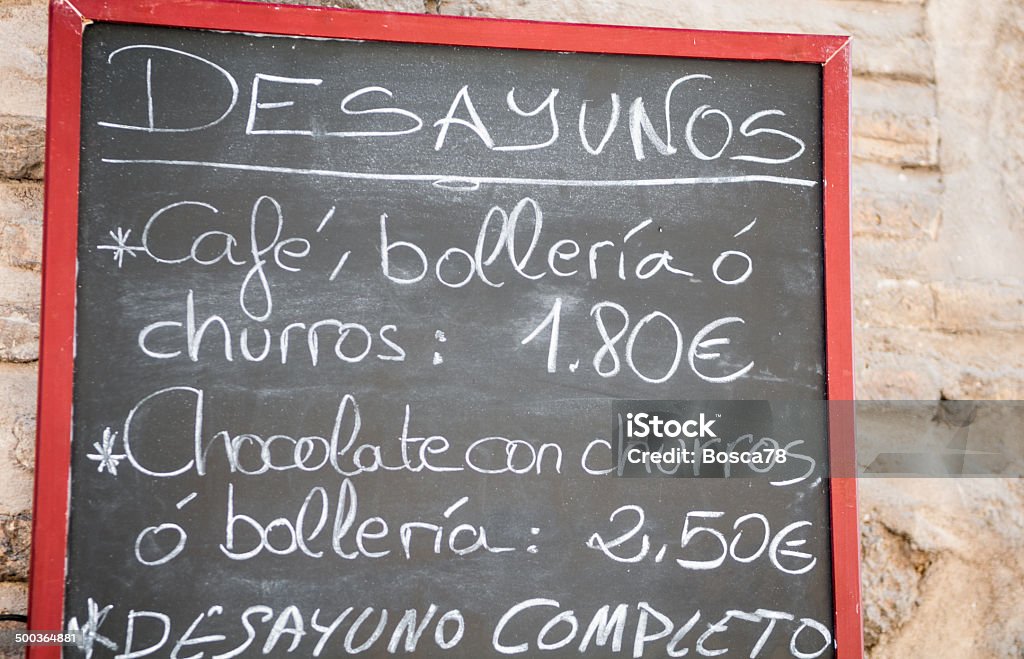 DESAYUNOS
*Café, bollería ó
churros: 1.80€
*Chocolate con churros,
ó bollería: 2,50€
*DESAYUNO COMPLETO
iStock™
Credit: Bosca78
500364881